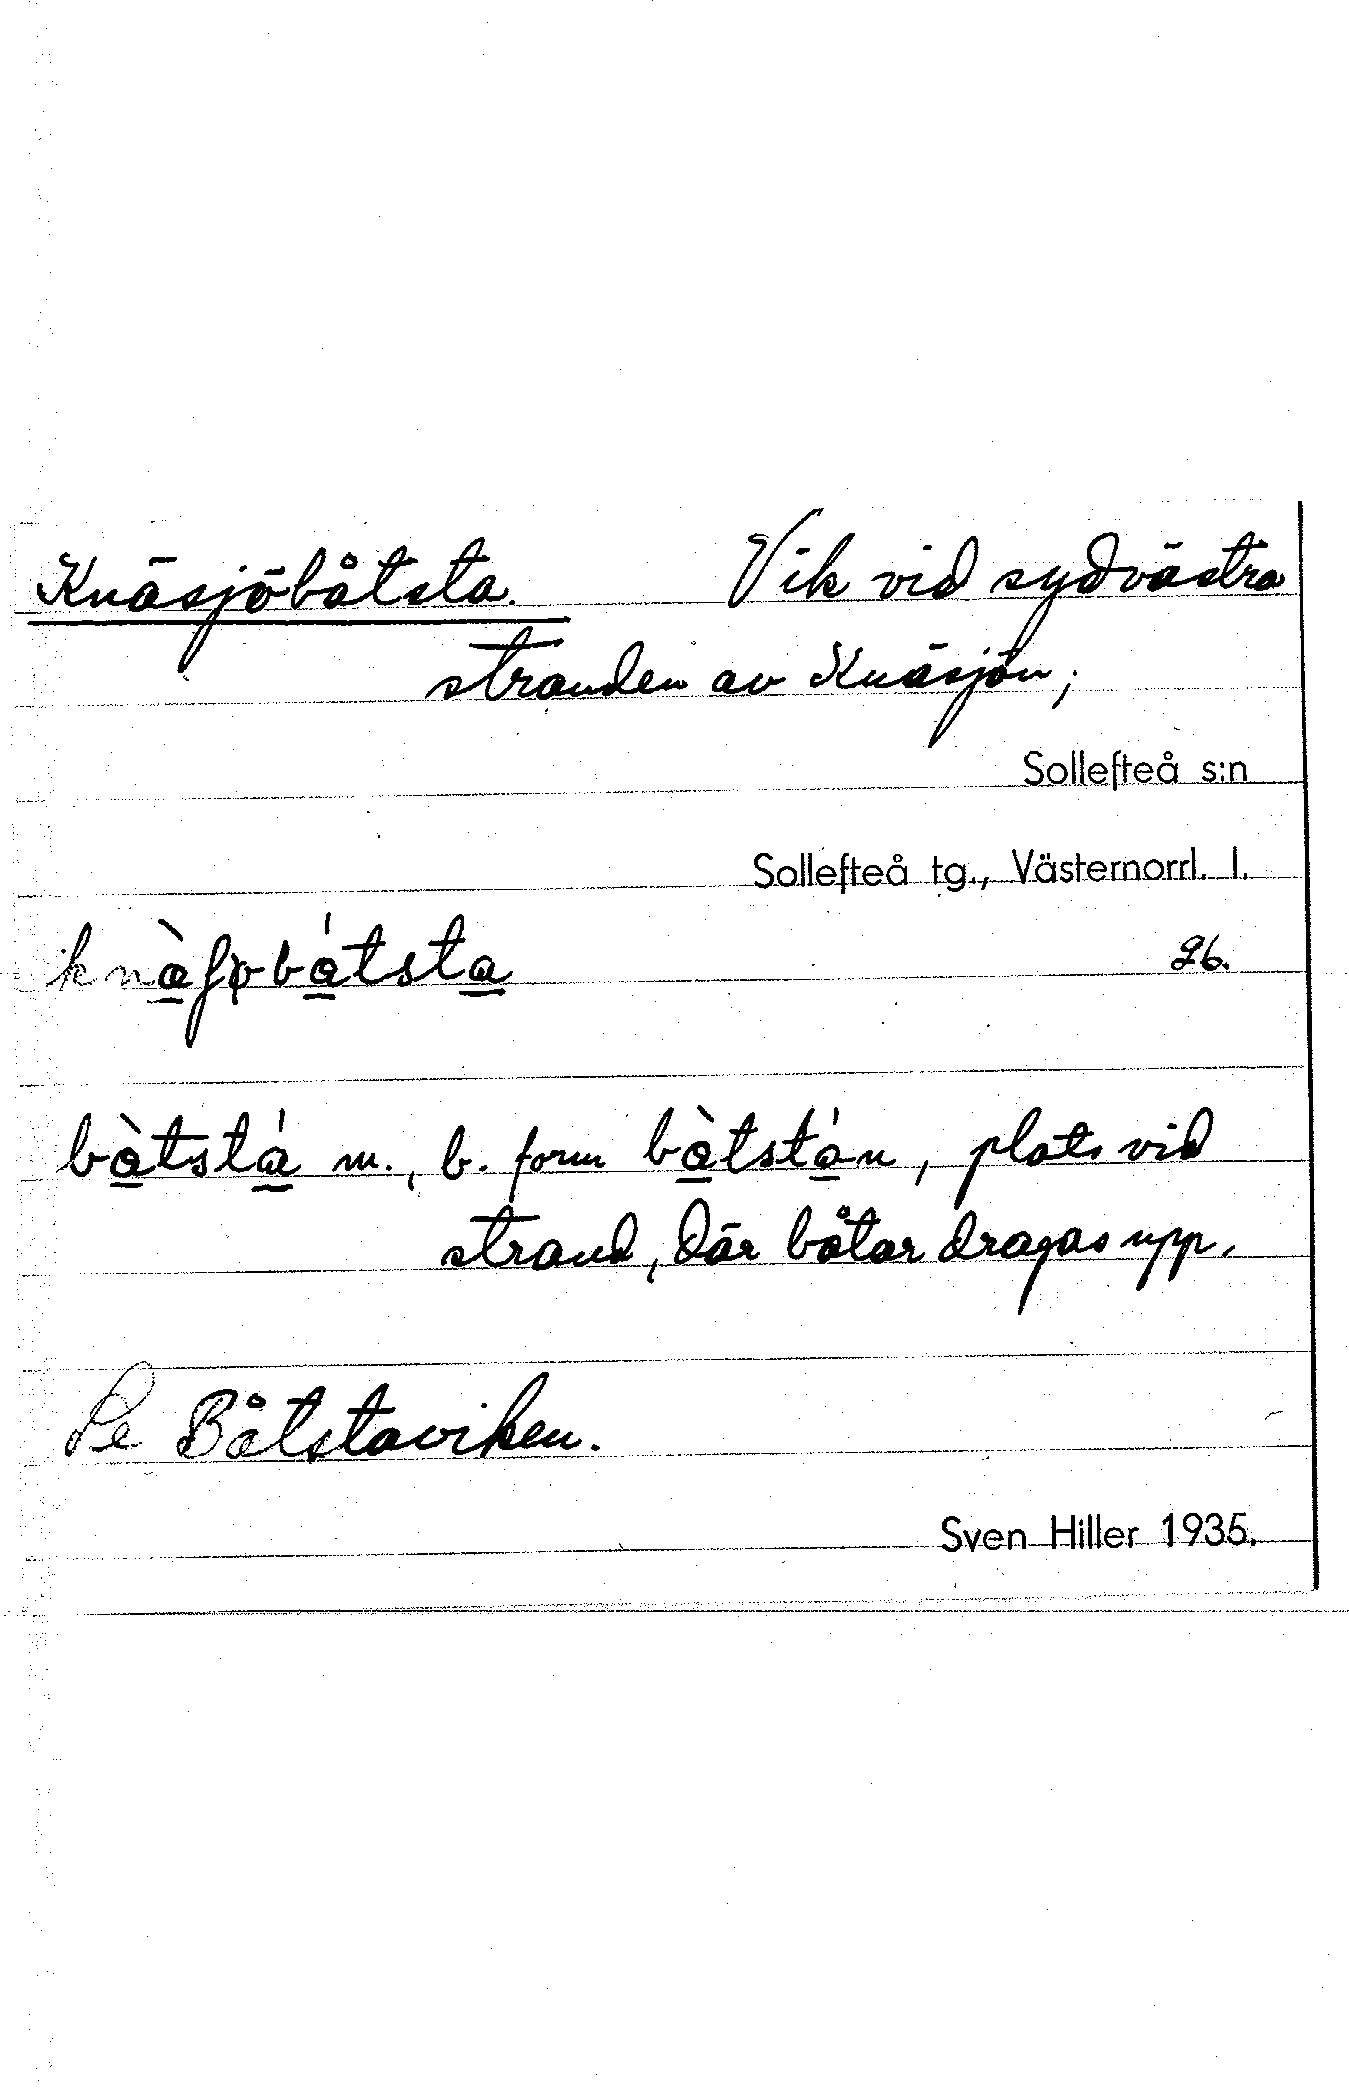 Knäsjöbåtsta. Vik vid sydvästra
stranden av Knäsjön;
Sollefteå s:n
Sollefteå tg., Västernorrl. l.
26.
bàtstá m., b. form bàtstán, plats vid
strand, där båtar dragas upp.
Se Båtstaviken.
Sven Hiller 1935.